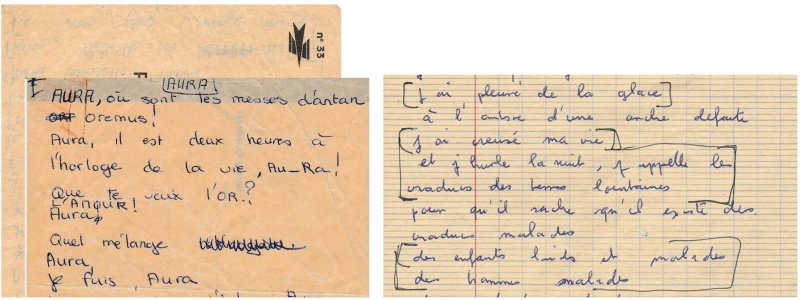 n° 33
AURA
AURA, où sont tes messes d'antan
oremus!
Aura, il est deux heures à
l'horloge de la vie, Au-Ra!
Que te veux l'OR?
L'AMOUR!
Aura,
Quel mélange
Aura,
je fuis, Aura
j'ai pleuré de la glace
à l'ombre d'une arche défaite
j'ai creusé ma vie
et j'hurle la nuit, j'appelle les
oraducs des terres lointaines
pour qu'il sache qu'il existe des
oraducs malades
des enfants lurids et malades
des hommes malades